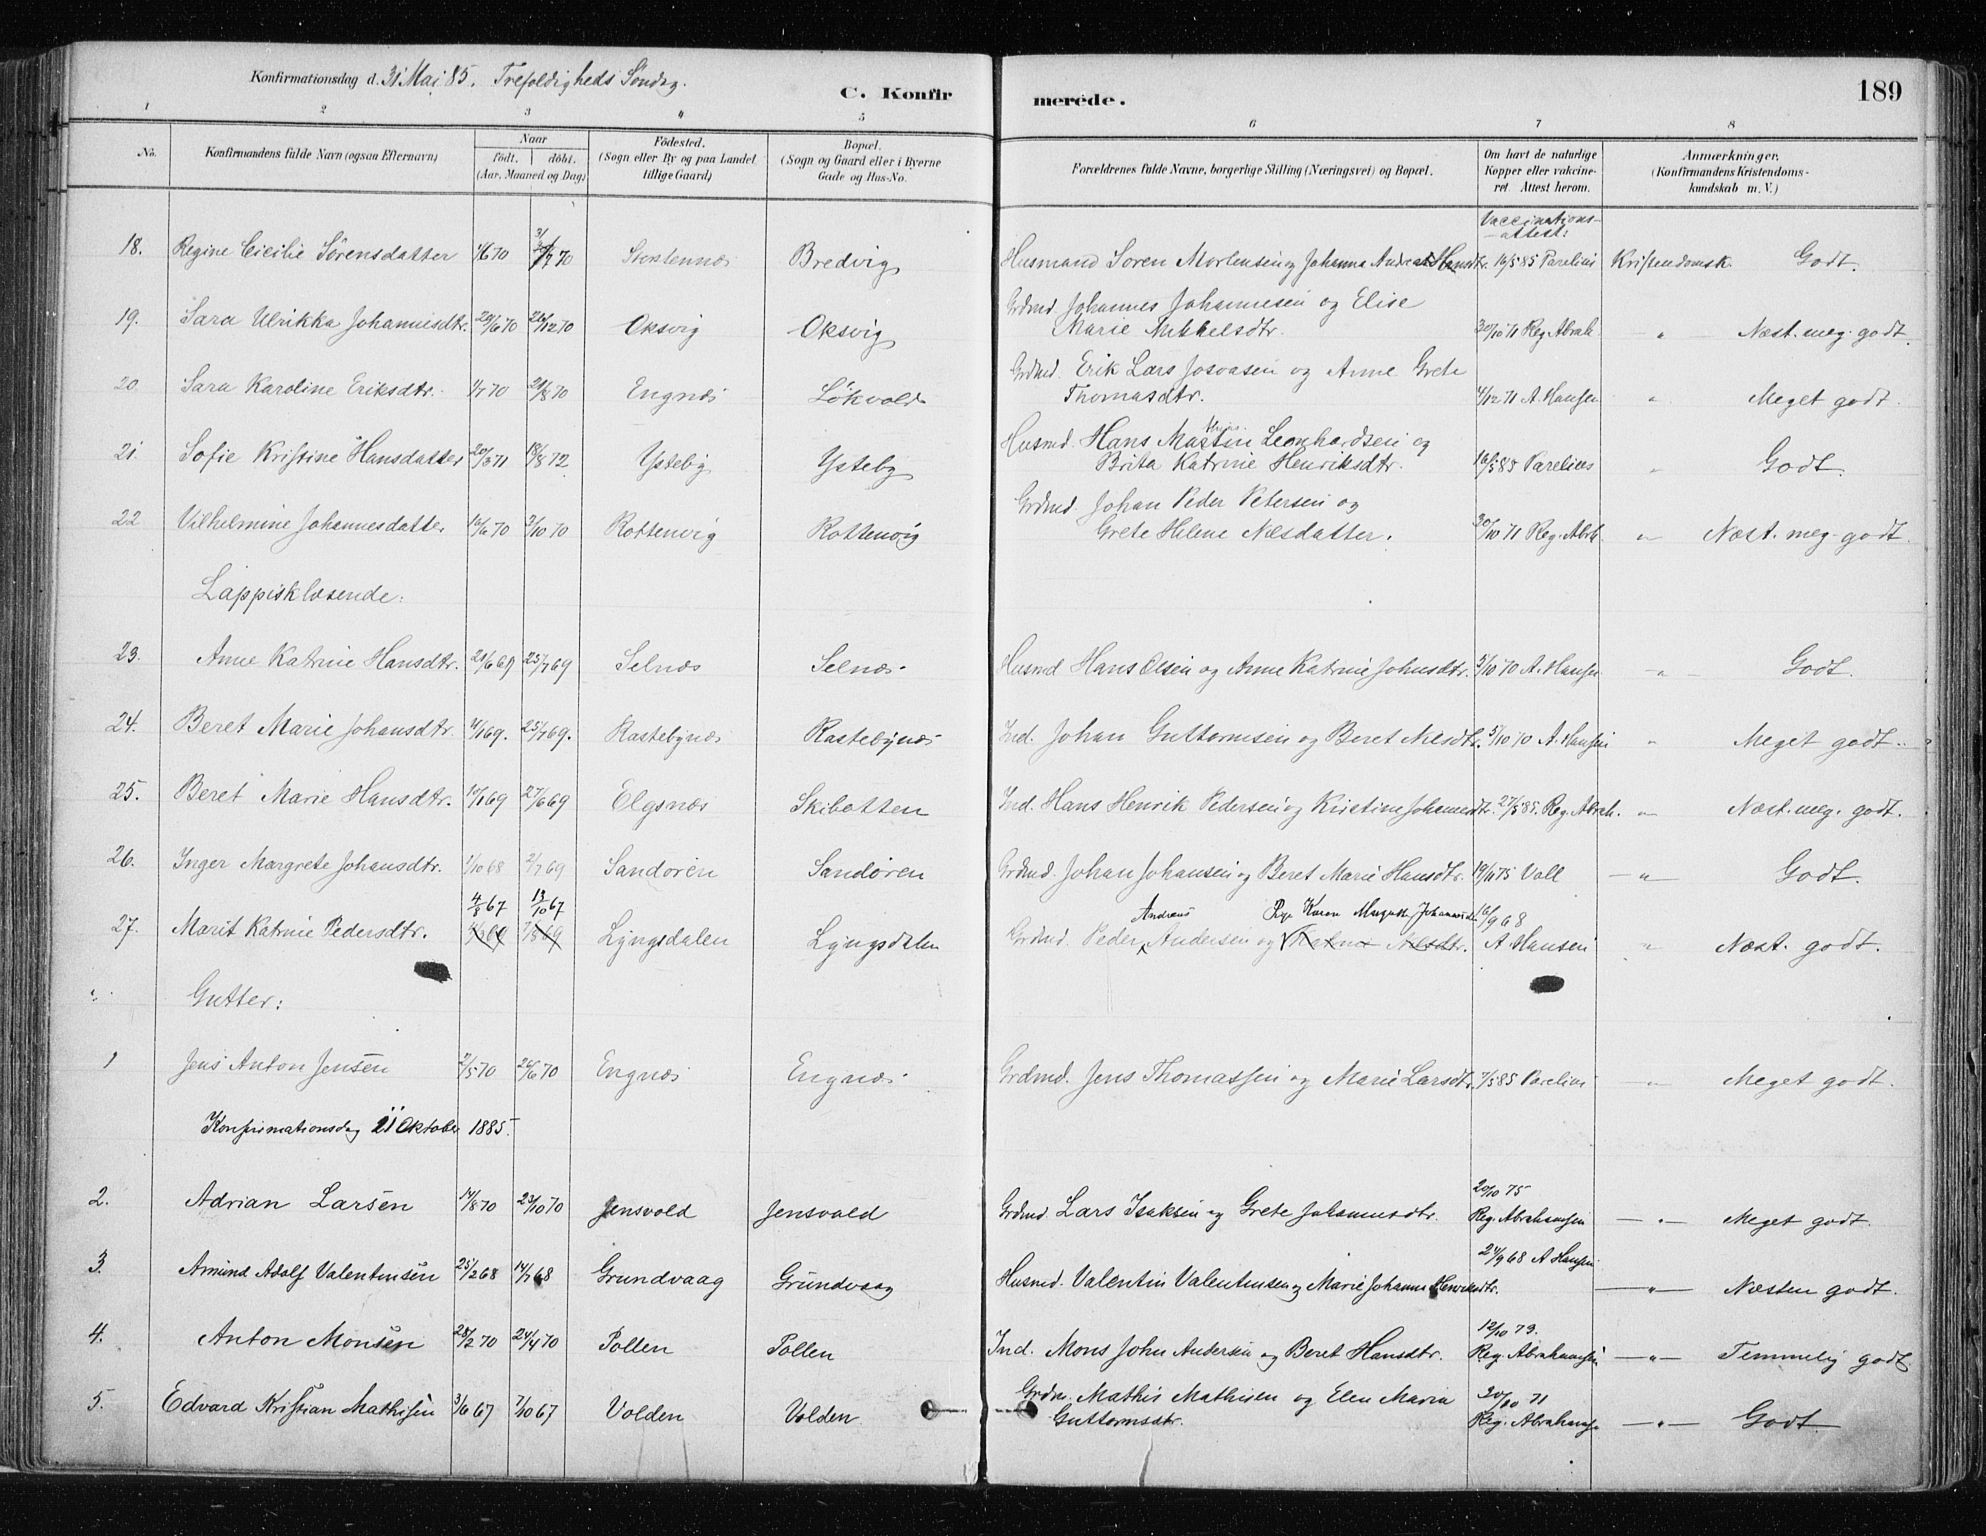 Konfirmationsdag d. 31 Mai 85. Trefoldigheds Søndag.
C. Konfirmerede. 189
1 2 3 4 5 6 7 8
No. Konfirmandens fulde Navn (ogsaa Efternavn) Naar født. døbt. (Aar, Maaned og Dag) Fødested. (Sogn eller By og paa Landet tillige Gaard) Bopæl. (Sogn og Gaard eller i Byerne Gade og Hus-No. Forældrenes fulde Navne, borgerlige Stilling (Næringsvei) og Bopæl. Om havt de naturlige Kopper eller vakcineret. Attest herom. Anmærkninger. (Konfirmandens Kristendomskundskab m. V.)
Vaccinations-attest:
18. Regine Cicilie Sørensdatter 70 70 Storstennæs Bredvig Husmand Søren Mortensen og Johanna Andrea Hansdtr. 16/5 85 Parelius Kristendomsk. Godt.
19. Sara Ulrikka Johannisdtr. 29/6 70 26/12 70 Oksvig Oksvig Grdmd. Johannes Johannesen og Elise
Marie Mikkelsdtr. 20/10 71 Reg. Abrah. " Næst. meg. godt.
20. Sara Karoline Eriksdtr. 1/7 70 28/8 70 Engnæs Løkvold Grdmd. Erik Lars Josvasen og Anne Grete
Thomasdtr. 4/12 71 A. Hansen " Meget godt.
21. Sofie Kristine Hansdatter 20/3 71 18/8 72 Ysteby Ysteby Husmd. Hans Martin Leonhardsen og
Brita Katrine Henriksdtr. 16/5 85 Parelius " Godt.
22 Vilhelmine Johannesdatter 16/6 70 2/10 70 Rottenvig Rottenvig Grdmd. Johan Peder Petersen og
Grete Helene Nilsdatter. 20/10 71 Reg. Abrh " Næst. meg. godt.
Lappisklæsende:
23. Anne Katrine Hansdtr. 21/6 69 25/7 69 Selnæs Selnæs Husmd Hans Olsen og Anne Katrine Johnsdtr. 5/10 70 A. Hansen " Godt.
24. Beret Marie Johansdtr. 4/1 69. 25/7 69. Rastebynæs Rastebynæs Ind. Johan Guttormsen og Beret Nilsdtr. 5/10 70 A. Hansen " Meget godt.
25. Beret Marie Hansdtr. 10/1 69 27/6 69 Elgsnæs Skibotten Ind. Hans Henrik Pedersen og Kristine Johannsdtr. 27/5 85. Reg. Abrah. " Næst. meg. godt.
26. Inger Margrete Johansdtr. 1/10 68 2/7 69 Sandøren Sandøren Grdmd. Johan Johansen og Beret Marie Hansdtr. 19/11 75 Voll " Godt.
27. Marit Katrine Pedersdtr. 4/8 67 13/10 67 Lyngsdalen Lyngsdalen Grdmd. Peder Andreas Andersen og Karen Johannesdtr. 16/9 68 A Hansen " Næst. godt.
Gutter:
1 Jens Anton Jensen 2/5 70 26/6 70 Engnæs Engnæs Grdmd. Jens Thomassen og Marie Larsdtr. 7/5 85 Parelius " Meget godt.
Konfirmationsdag 11 Oktober 1885.
2. Adrian Larsen 14/8 70 23/10 70 Jensvold Jensvold Grdmd. Lars Isaksen og Grete Johannesdtr. 20/10 75 Reg. Abrahamsen " Meget godt.
3. Amund Adolf Valentinsen 25/2 68 14/7 68 Grundvaag Grundvaag Husmd. Valentin Valentinsen og Marie Johanna Henriksdtr. 24/9 68 A Hansen " Næsten godt.
4. Anton Monsen 28/2 70 24/4 70 Pollen Pollen Ind. Mons John Andersen og Beret Hansdtr. 12/10 79. Reg. Abrahamsen " Temmelig godt
5. Edvard Kristian Mathisen 3/6 67 7/10 67 Volden Volden Grdm. Mathis Mathisen og Elen Maria
Guttormsdtr. 20/10 71 Reg. Abrahamse " Godt.